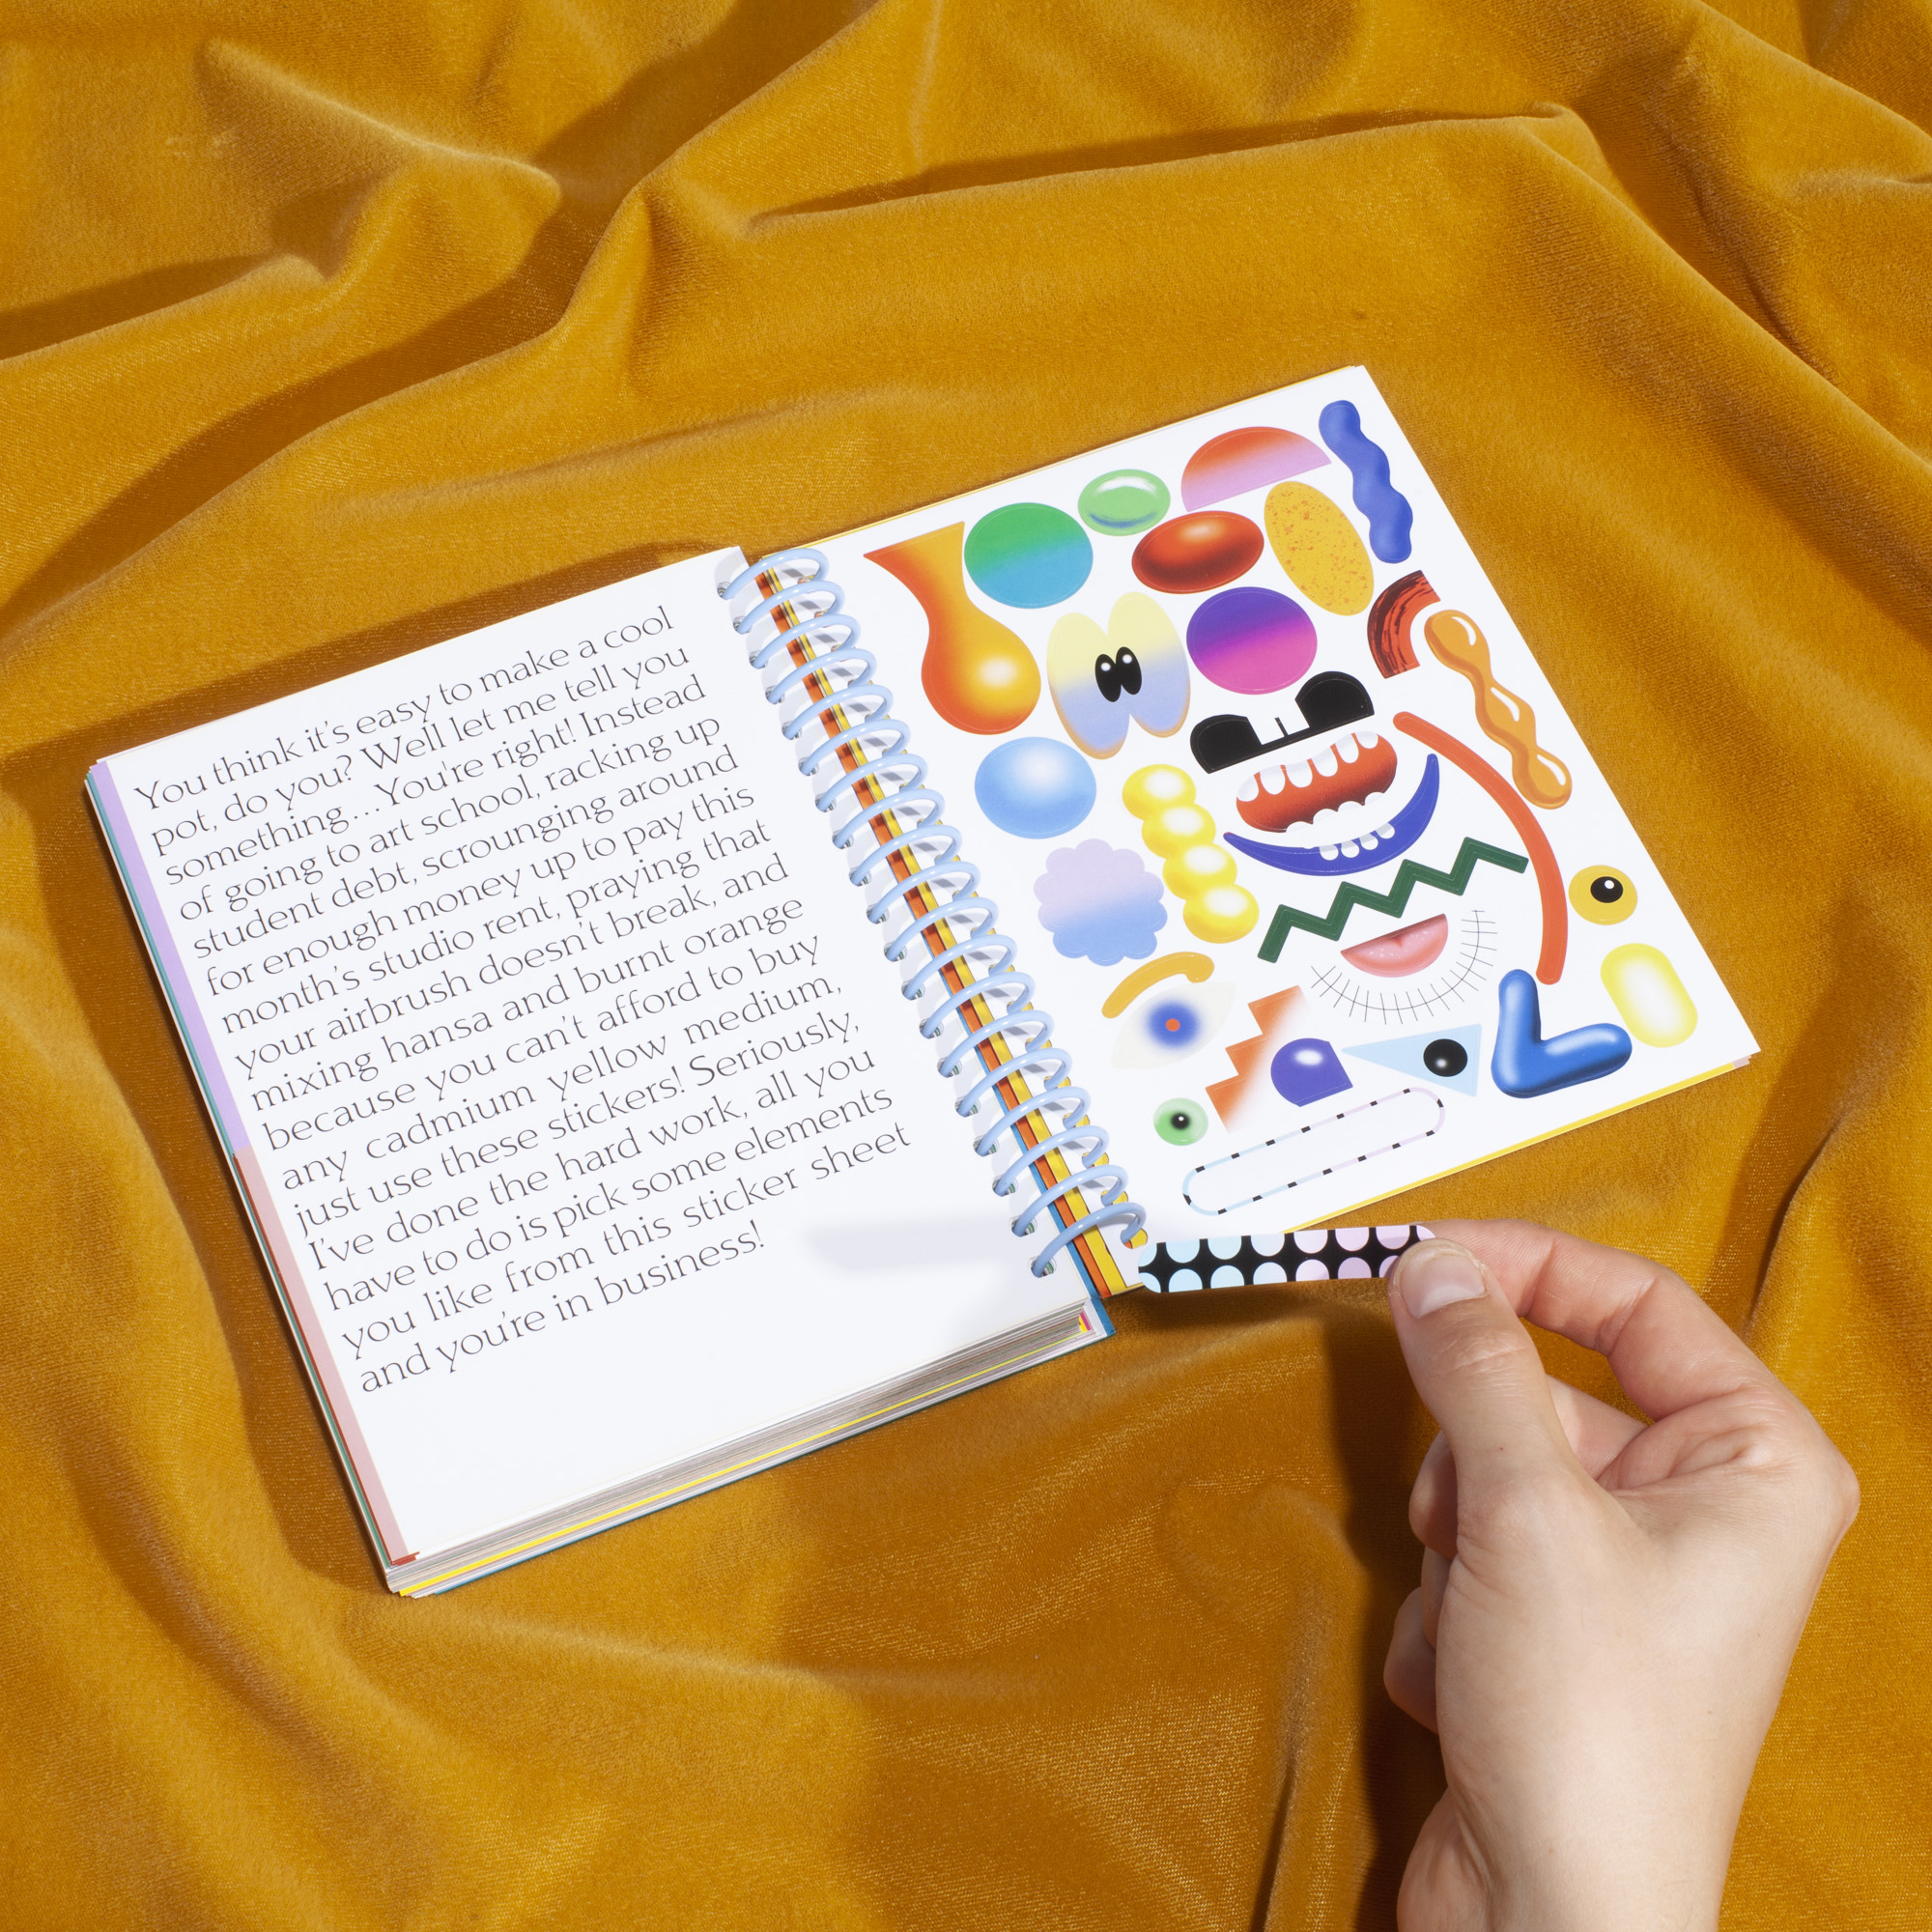 You think it's easy to make a cool
pot, do you? Well let me tell you
something...You're right! Instead
of going to art school, racking up
student debt, scrounging around
for enough money up to pay this
month's studio rent, praying that
your airbrush doesn't break, and
mixing hansa and burnt orange
because you can't afford to buy
any cadmium yellow medium,
just use these stickers! Seriously,
I've done the hard work, all you
have to do is pick some elements
you like from this sticker sheet
and you're in business!